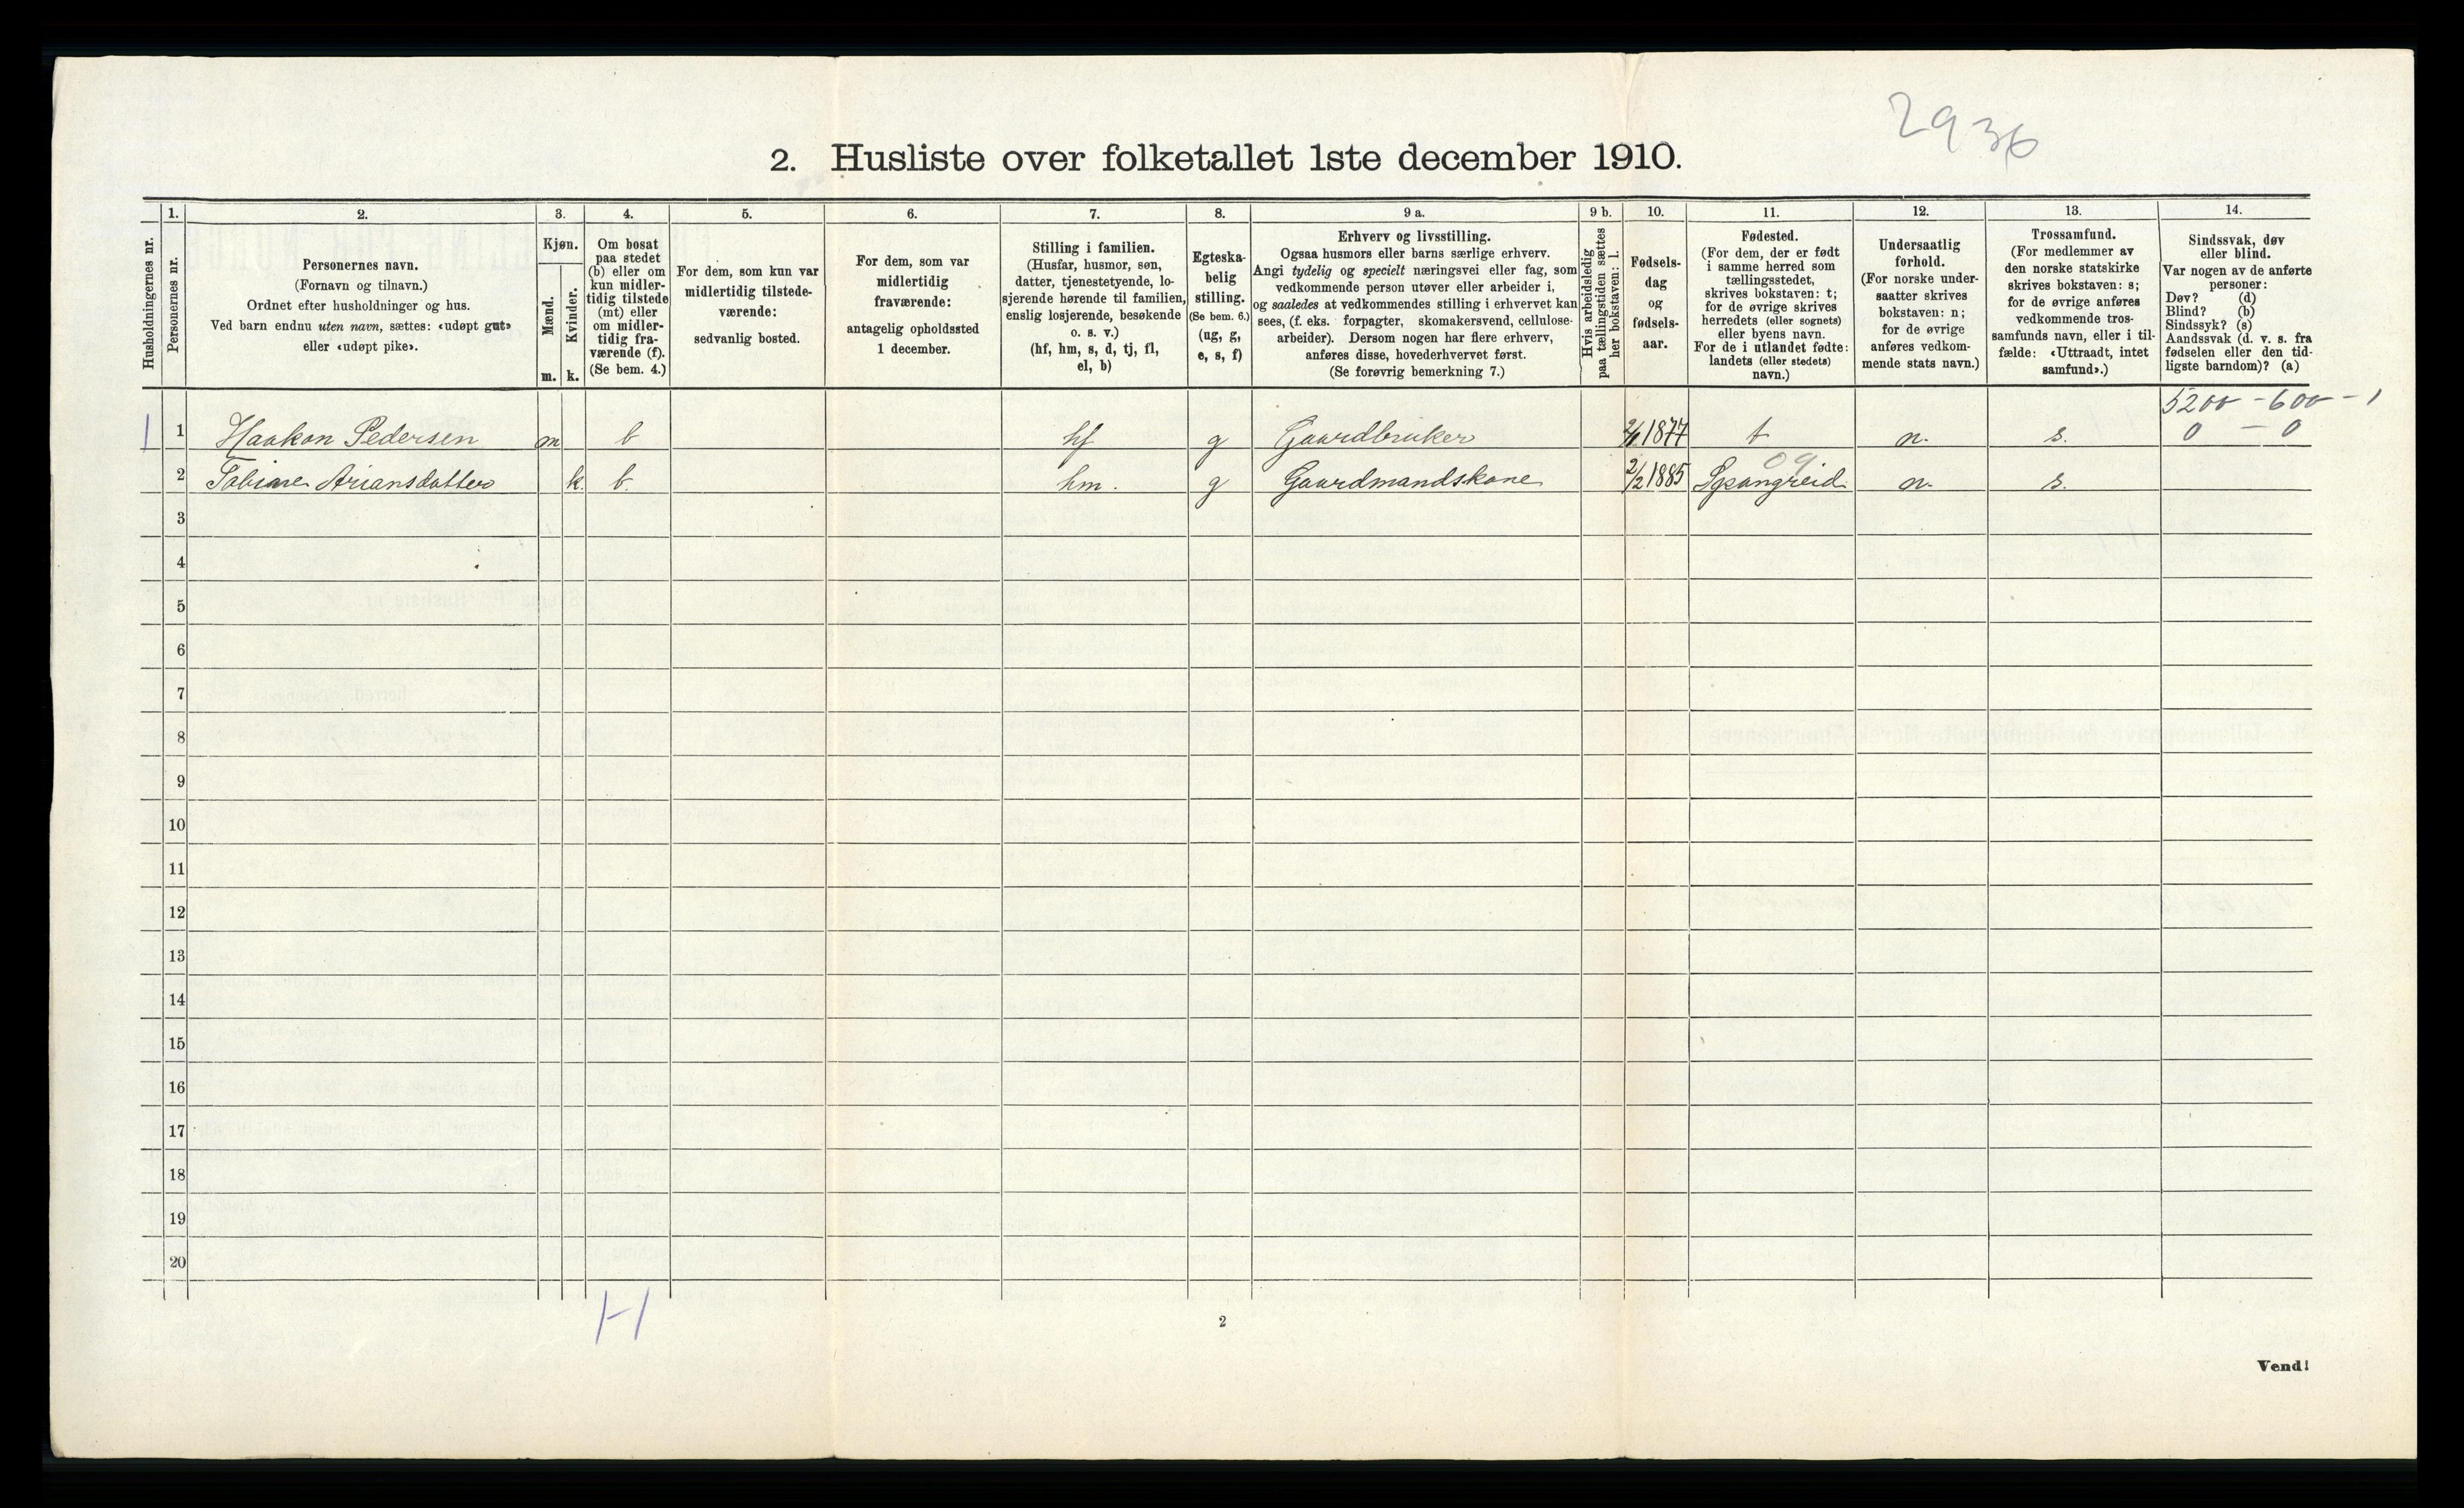 2936
2. Husliste over folketallet 1ste december 1910.
Husholdningernes nr.
1.
Personernes nr.
2.
Personernes navn.
(Fornavn og tilnavn.)
Ordnet efter husholdninger og hus.
Ved barn endnu uten navn, sættes: «udøpt gut»
eller «udøpt pike».
3.
Kjøn.
Mænd.
m.
Kvinder.
k.
4.
Om bosat
paa stedet
(b) eller om
kun midler-
tidig tilstede
(mt) eller
om midler-
tidig fra-
værende (f).
(Se bem. 4.)
5.
For dem, som kun var
midlertidig tilstede-
værende:
sedvanlig bosted.
6.
For dem, som var
midlertidig
fraværende:
antagelig opholdssted
1 december.
7.
Stilling i familien.
(Husfar, husmor, søn,
datter, tjenestetyende, lo-
sjerende hørende til familien,
enslig losjerende, besøkende
o. s. v.)
(hf, hm, s, d, tj, fl,
el, b)
8.
Egteska-
belig
stilling.
(Se bem. 6.)
(ug, g,
e, s, f)
9 a.
Erhverv og livsstilling.
Ogsaa husmors eller barns særlige erhverv.
Angi tydelig og specielt næringsvei eller fag, som
vedkommende person utøver eller arbeider i,
og saaledes at vedkommendes stilling i erhvervet kan
sees, (f. eks. forpagter, skomakersvend, cellulose-
arbeider). Dersom nogen har flere erhverv,
anføres disse, hovederhvervet først.
(Se forøvrig bemerkning 7.)
9 b.
Hvis arbeidsledig
paa tællingstiden sættes
her bokstaven: l.
10.
Fødsels-
dag
og
fødsels-
aar.
11.
Fødested.
(For dem, der er født
i samme herred som
tællingsstedet,
skrives bokstaven: t;
for de øvrige skrives
herredets (eller sognets)
eller byens navn.
For de i utlandet fødte:
landets (eller stedets)
navn.)
12.
Undersaatlig
forhold.
(For norske under-
saatter skrives
bokstaven: n;
for de øvrige
anføres vedkom-
mende stats navn.)
13.
Trossamfund.
(For medlemmer av
den norske statskirke
skrives bokstaven: s;
for de øvrige anføres
vedkommende tros-
samfunds navn, eller i til-
fælde: «Uttraadt, intet
samfund».)
14.
Sindssvak, døv
eller blind.
Var nogen av de anførte
personer:
Døv? (d)
Blind? (b)
Sindssyk? (s)
Aandssvak (d. v. s. fra
fødselen eller den tid-
ligste barndom)? (a)
5200 - 600 - 1
0 - 0
1 1 Haakon Pedersen m b hf g Gaardbruker 1877 t n. s.
09
2 Tobine Ariansdatter k. b. hm. g Gaardmandskone 2/2 1885 Spangreid n. s.
3
4
5
6
7
8
9
10
11
12
13
14
15
16
17
18
19
20
2
Vend!